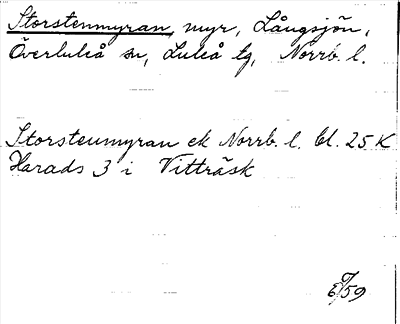 Storstenmyran, myr, Långsjön,
Överluleå sn, Luleå tg, Norrb. l.
Storstenmyran ek Norrb. l. bl. 25 K
Harads 3 i Vitträsk
/59